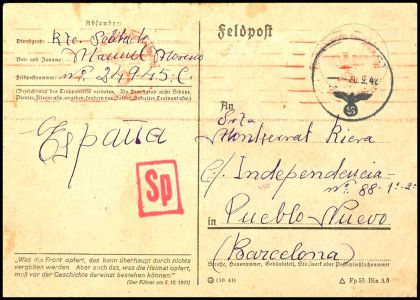 Absender:
Dienstgrad:
Vor- und Zuname: Manuel Moreno
Feldpostnummer: nº 24945.C.
(Bezeichnung des Truppenteils verboten. Als Dienstgrad nicht Schütze,
España
Sp
"Was die Front opfert, das kann überhaupt durch nichts
vergolten werden. Aber auch das, was die Heimat opfert,
muß vor der Geschichte dereinst bestehen können."
(Der Führer am 3. 10. 1941)
Feldpost
9. 42
An
Srta
Montserrat Riera
c/ Independencia-
nº 88-1º-2ª
in Pueblo Nuevo
(Barcelona)
Straße, Hausnummer, Gebäudeteil, Stockwerk oder Postschließfachnummer
Fp 53 Din A 6